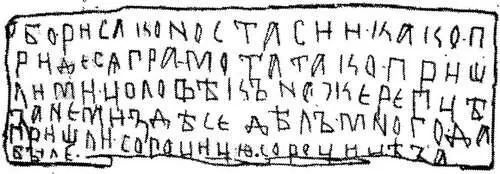 БОРИСА КО НОСТАСИИ · КАКО · П
РИДЕ СѦ ГРАМОТА ТАКО · ПРИШ
ЛИ МИ ЦОЛОВѢКЪ НА ЖЕРЕПЦѢ
ЗАНЕ МИ ЗДѢСЕ ДѢЛЪ МНОГО ДА
ПРИШЛИ · СОРОЦИЦЮ · СОРОЦИЦѢ ЗА
БЫЛЕ ·